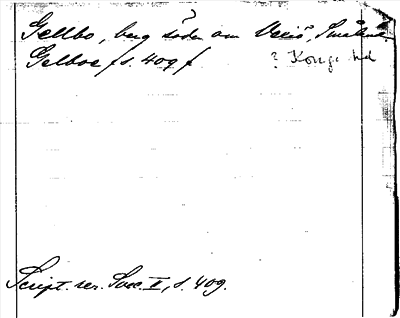 Gellbo, berg söder om Vexiö, Småland.
Gelboe f s. 409 f ? Kongr hd
Script. rer. Svec. II, s. 409.